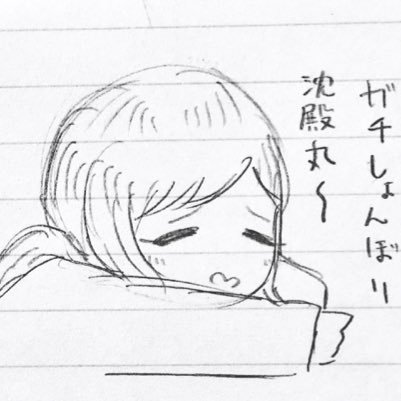 ガチしょんぼり
沈殿丸〜